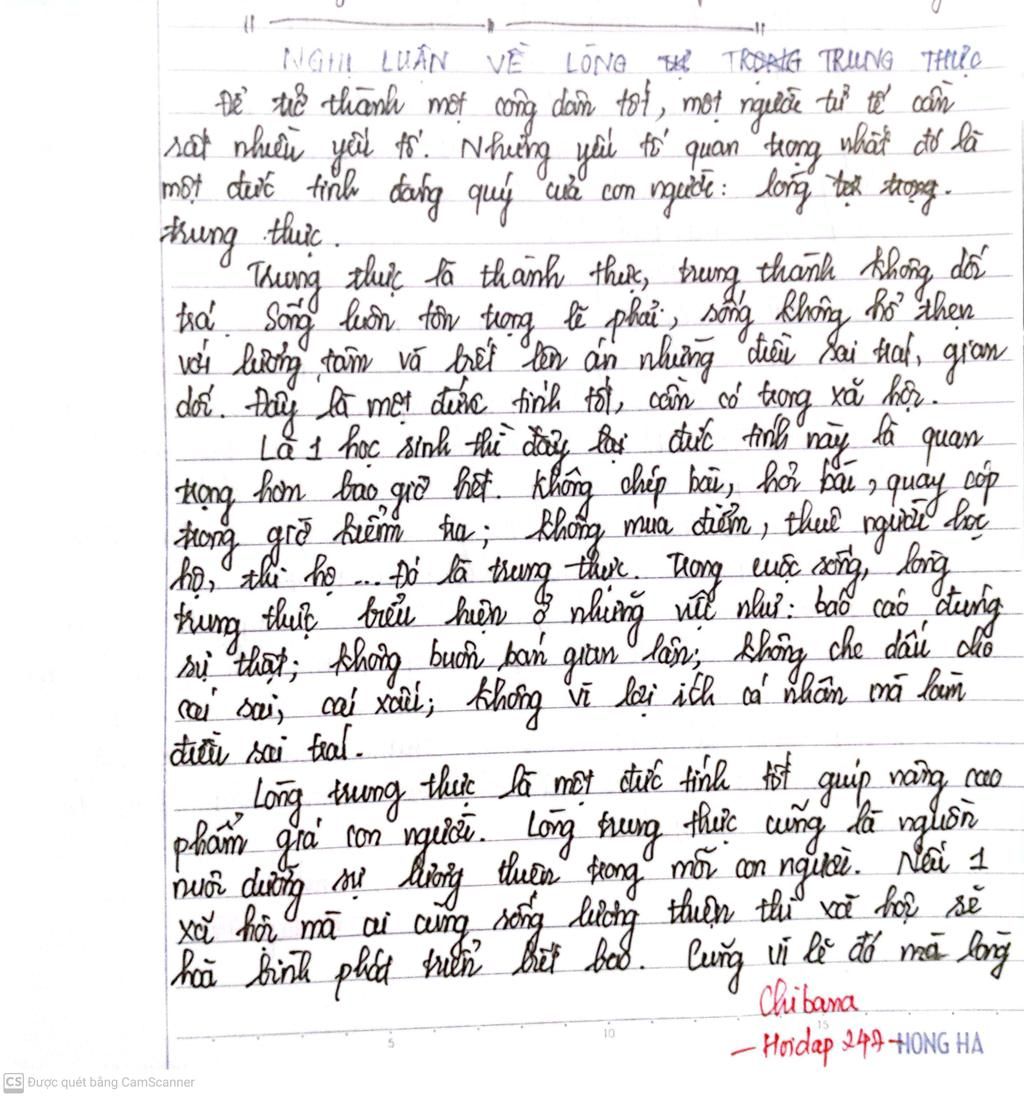 NGHỊ LUẬN VỀ LÒNG TỰ TRỌNG TRUNG THỰC
Để trở thành một công dân tốt, một người tử tế cần
rất nhiều yếu tố. Những yếu tố quan trọng nhất đó là
một đức tính đáng quý của con người: lòng tự trọng.
trung thực.
Trung thực là thành thực, trung thành không dối
trá. Sống luôn tôn trọng lẽ phải, sống không hổ thẹn
với lương tâm và biết lên án những điều sai trái, gian
dối. Đây là một đức tính tốt, cần có trong xã hội.
Là 1 học sinh thì đây lại đức tính này là quan
trọng hơn bao giờ hết. Không chép bài, hỏi bài, quay cóp
trong giờ kiểm tra; không mua điểm, thuê người học
hộ, thi hộ ... Đó là trung thực. Trong cuộc sống, lòng
trung thực biểu hiện ở những việc như: báo cáo đúng
sự thật; không buôn bán gian lận; không che dấu cho
cái sai, cái xấu; không vì lợi ích cá nhân mà làm
điều sai trái.
Lòng trung thực là một đức tính tốt giúp nâng cao
phẩm giá con người. Lòng trung thực cũng là nguồn
nuôi dưỡng sự lương thiện trong mỗi con người. Nếu 1
xã hội mà ai cũng sống lương thiện thì xã hội sẽ
hoà bình phát triển biết bao. Cũng vì lẽ đó mà lòng
Chibana
- Hoidap 247 -
HONG HA
5 10 15
CS Được quét bằng CamScanner